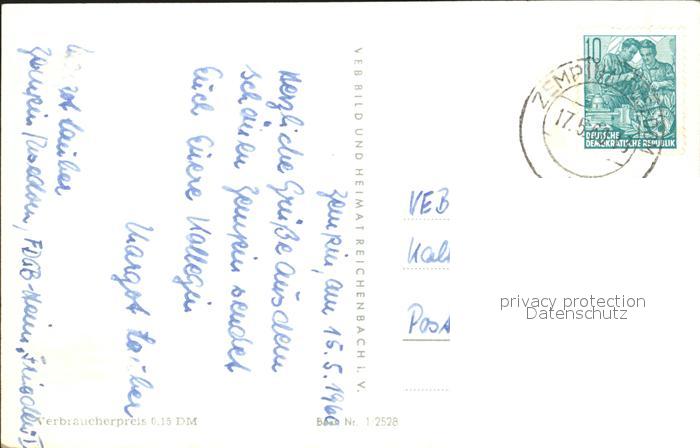 Margot Lauber
Zempin/Usedom, FDGB-Heim "Frieden"
Zempin, am 15.5.1960
Herzliche Grüße aus dem
schönen Zempin sendet
Euch Eure Kollegin
Margot Lauber
VEB BILD UND HEIMAT REICHENBACH i. V.
Verbraucherpreis 0,15 DM
Best. Nr. 1/2528
10
DEUTSCHE
DEMOKRATISCHE REPUBLIK
ZEMPIN
17.5.
VEB
Post
privacy protection
Datenschutz